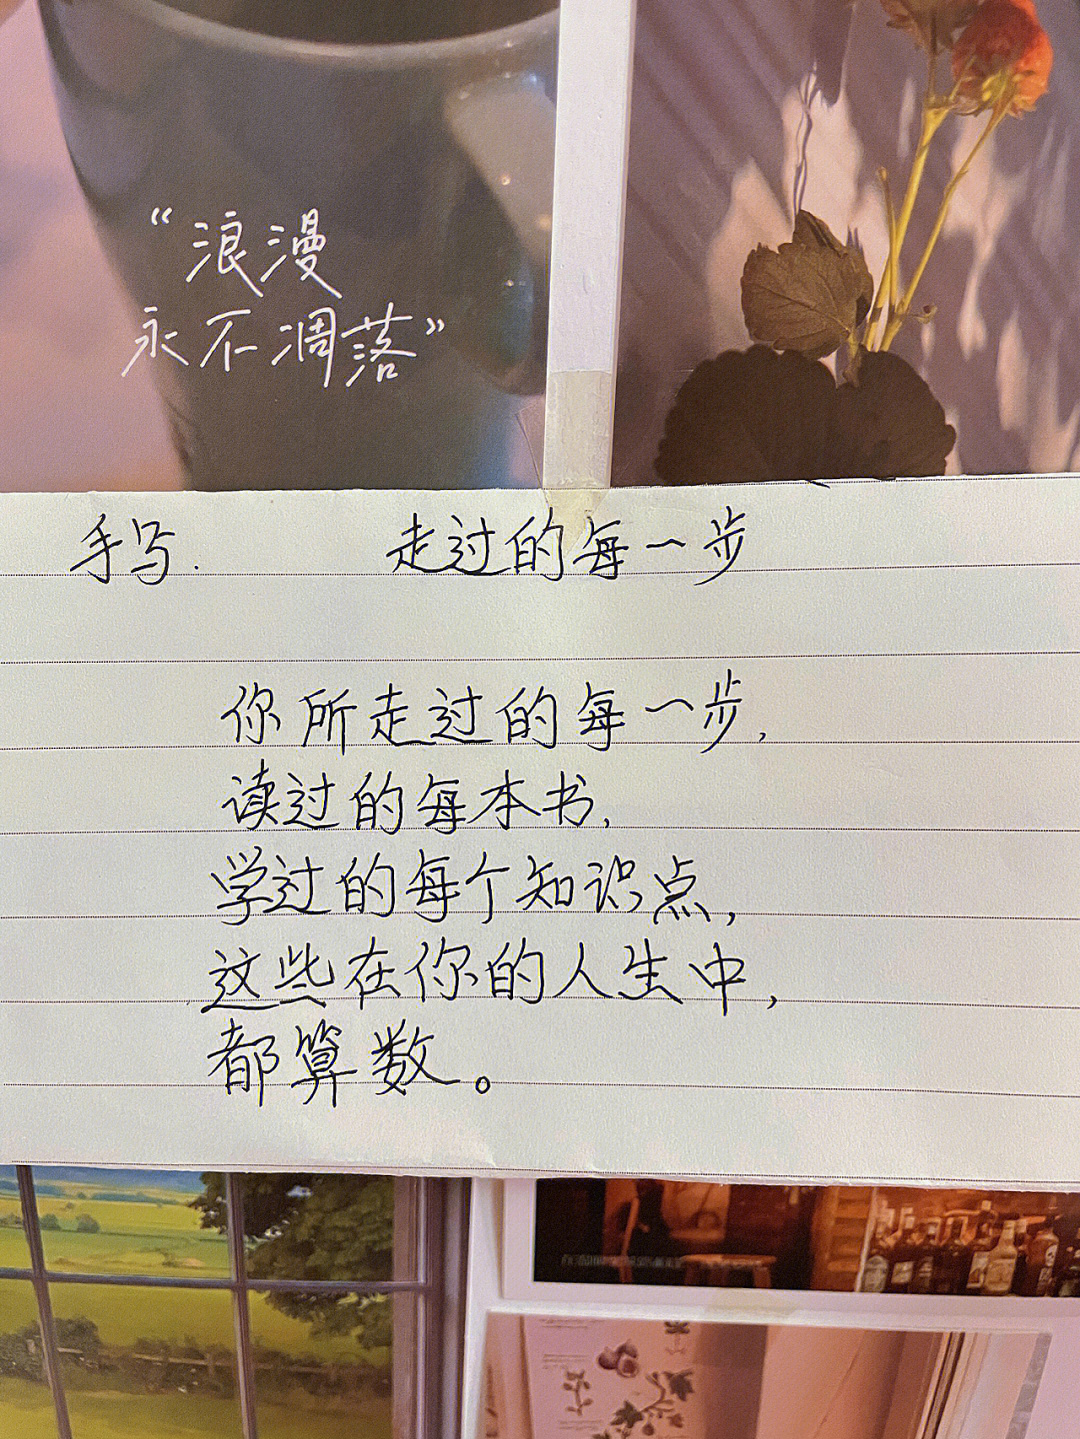 “浪漫
永不凋落”
手写. 走过的每一步
你所走过的每一步,
读过的每本书,
学过的每个知识点,
这些在你的人生中,
都算数。